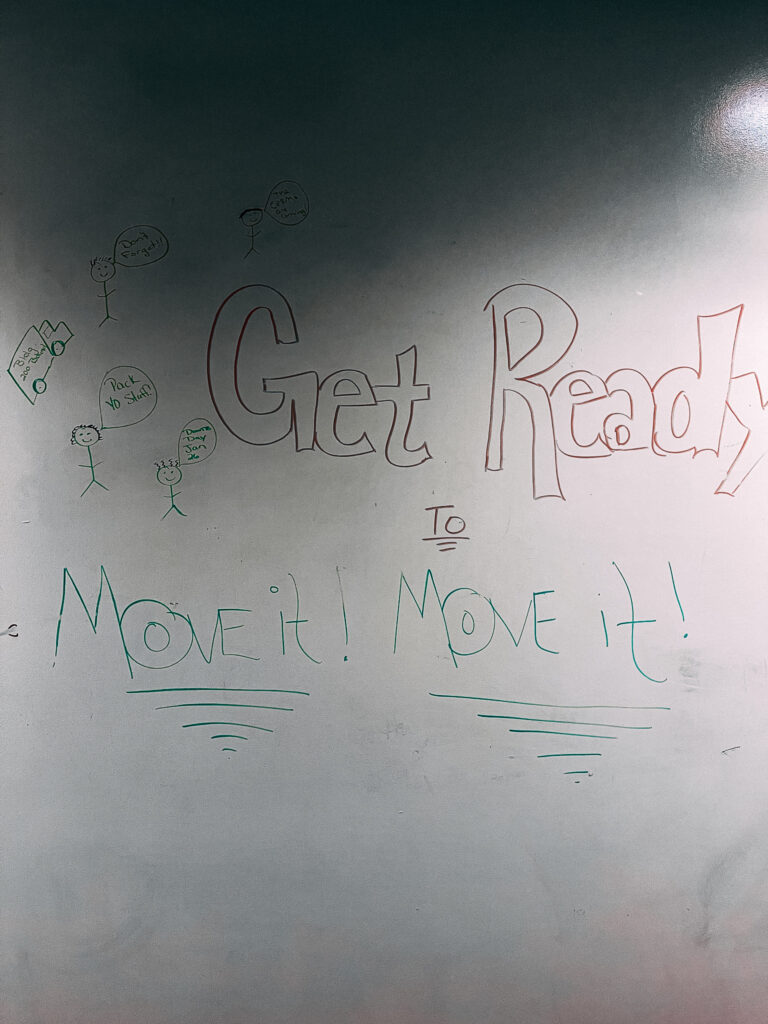 The
are
coming
Don't
Forget!!
Get Ready
Bldg
200
Pack
Yo Stuff!
Day
Jan
26
To
Move it! Move it!